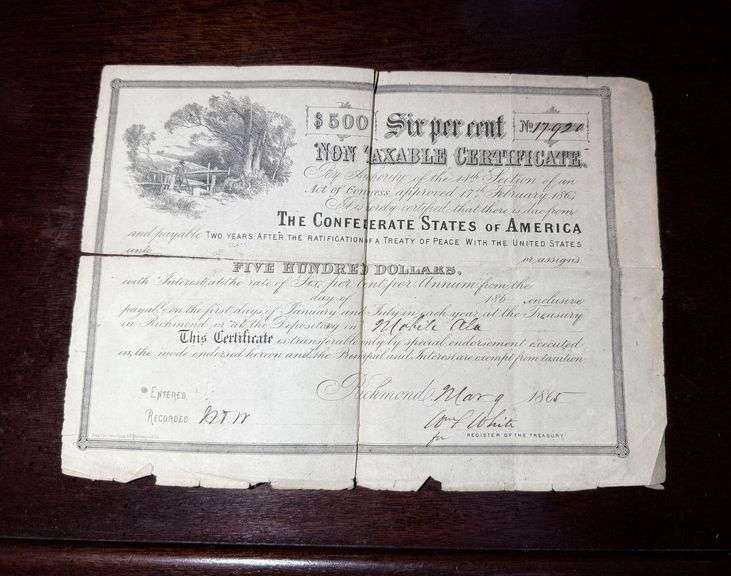 $500 Six per cent No 17920
NON TAXABLE CERTIFICATE.
By Authority of the 14th Section of an
Act of Congress approved 17th February 1864
It is hereby certified that there is due from
THE CONFEDERATE STATES OF AMERICA
and payable TWO YEARS AFTER THE RATIFICATION OF A TREATY OF PEACE WITH THE UNITED STATES
unto or assigns
FIVE HUNDRED DOLLARS,
with Interest at the rate of Six per Cent per Annum from the
day of 186 inclusive
payable on the first days of January and July in each year at the Treasury
in Richmond or at the Depositary in Mobile Ala
This Certificate is transferable only by special endorsement executed
in the mode endorsed hereon and the Principal and Interest are exempt from taxation
Richmond, Mar 9 1865
ENTERED
RECORDED
Wm S White
for REGISTER OF THE TREASURY